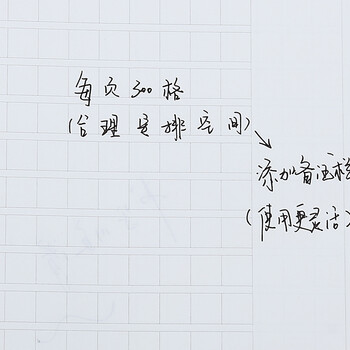 每页300格
(合理安排空间)
添加备注栏
(使用更灵活)